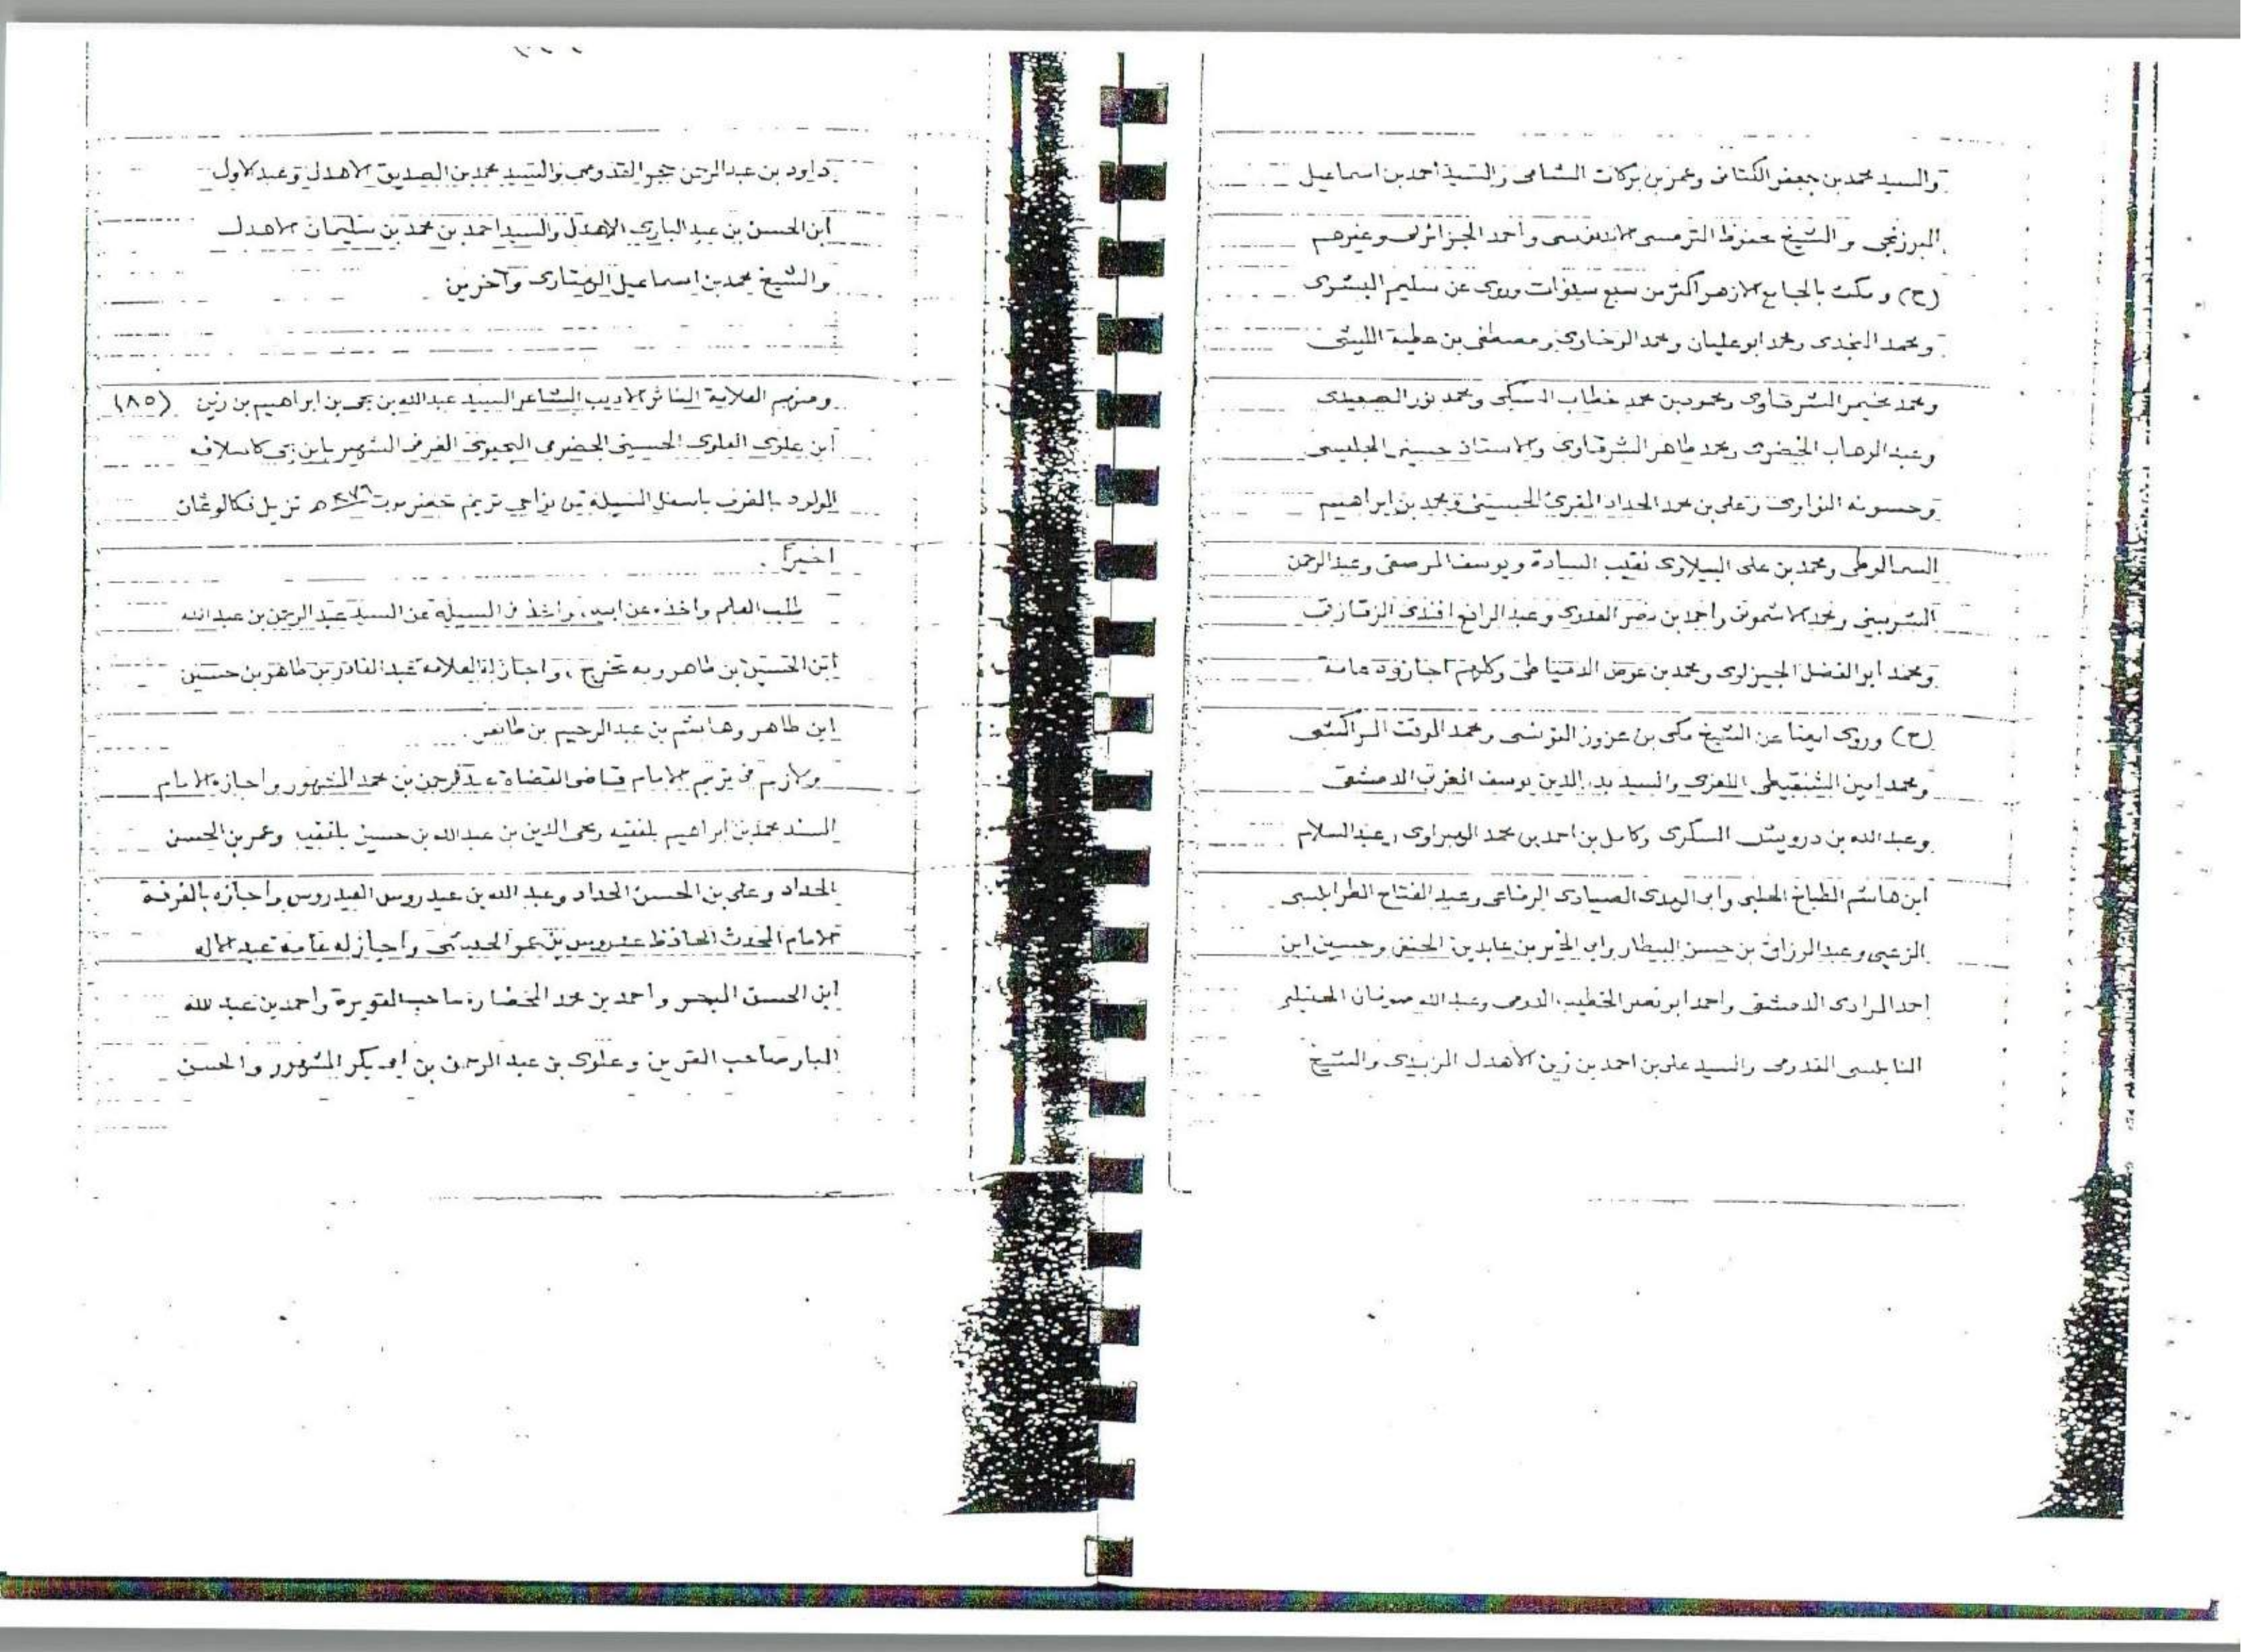 والسيد محمد بن جعفر الكتانى وعمر بن بركات الشامى والسيد احمد بن اسماعيل
البرزنجى و الشيخ محفوظ الترمسى الاندنوسى وأحمد الجزائرلى وغيرهم
(ح) ومكث بالجامع الازهر اكثر من سبع سنوات وروى عن سليم البشرى
ومحمد النجدى ومحمد ابو عليان ومحمد الرخاوى ومصطفى بن عطية الليثى
ومحمد مخيمر الشرقاوى ومحمود بن محمد خطاب السبكى ومحمد نور الصعيدى
وعبد الوهاب الخضرى ومحمد طاهر الشرقاوى والاستاذ حسينى الجليسى
وحسونه النواوى وعلى بن محمد الحداد المقرئ الحسينى ومحمد بن ابراهيم
السمالوطى ومحمد بن على الببلاوى نقيب السادة ويوسف المرصفى وعبد الرحمن
الشربينى ومحمد الاشمونى واحمد بن نصر العدوى وعبد الرافع افندى الزقازقى
ومحمد ابو الفضل الجيزاوى ومحمد بن عوض الدمياطى وكلهم اجازوه عامة
(ح) وروى ايضا عن الشيخ مكى بن عزوز التونسى ومحمد الموقت المراكشى
ومحمد امين الشنقيطى اللغوى والسيد بدر الدين يوسف المغربى الدمشقى
وعبد الله بن درويش السكرى وكامل بن احمد بن محمد الهبراوى وعبد السلام
ابن هاشم الطباخ الحلبى وابى الهدى الصيادى الرفاعى وعبد الفتاح الطرابلسى
الزعبى وعبد الرزاق بن حسن البيطار وابى الخير بن عابدين الحنفى وحسين ابن
احمد المرادى الدمشقى واحمد ابو نصر الخطيب الدومى وعبد الله صوفان الحنبلى
النابلسى القدومى والسيد على بن احمد بن زين الاهدل الزبيدى والشيخ
داود بن عبد الرحمن حجر القدومى والسيد محمد بن الصديق الاهدل وعبد الاول
ابن الحسن بن عبد البارى الاهدل والسيد احمد بن محمد بن سليمان الاهدل
والشيخ محمد بن اسماعيل الهتارى وآخرين
ومنهم العلامة الناثر الاديب الشاعر السيد عبد الله بن يحى بن ابراهيم بن زين (٨٥)
ابن علوى العلوى الحسينى الحضرمى اليحيوى الغرفى الشهير بابن يحى كاسلافه
المولود بالغرف باسفل المسيلة من نواحي تريم حضرموت ١٢٧٩ هـ نزيل فكالوغان
اخيراً .
طلب العلم واخذه عن ابيه، واخذ فى المسيلة عن السيد عبد الرحمن بن عبد الله
ابن الحسين بن طاهر وبه تخرج ، واجاز له العلامة عبد القادر بن طاهر بن حسين
ابن طاهر وهاشم بن عبد الرحيم بن طاهر .
ولازم فى تريم الامام قاضى القضاة عبد الرحمن بن محمد المشهور واجازه الامام
المسند محمد بن ابراهيم بلفقيه ومحى الدين بن عبد الله بن حسين بلفقيه وعمر بن الحسن
الحداد وعلى بن الحسن الحداد وعبد الله بن عيدروس العيدروس واجازه بالغرفة
الامام المحدث الحافظ عيدروس بن عمر الحبشى واجاز له عامة عبد الاله
ابن الحسن البحر واحمد بن محمد المحضار صاحب القويرة واحمد بن عبد الله
البار صاحب القرين وعلوى بن عبد الرحمن بن ابى بكر المشهور والحسن